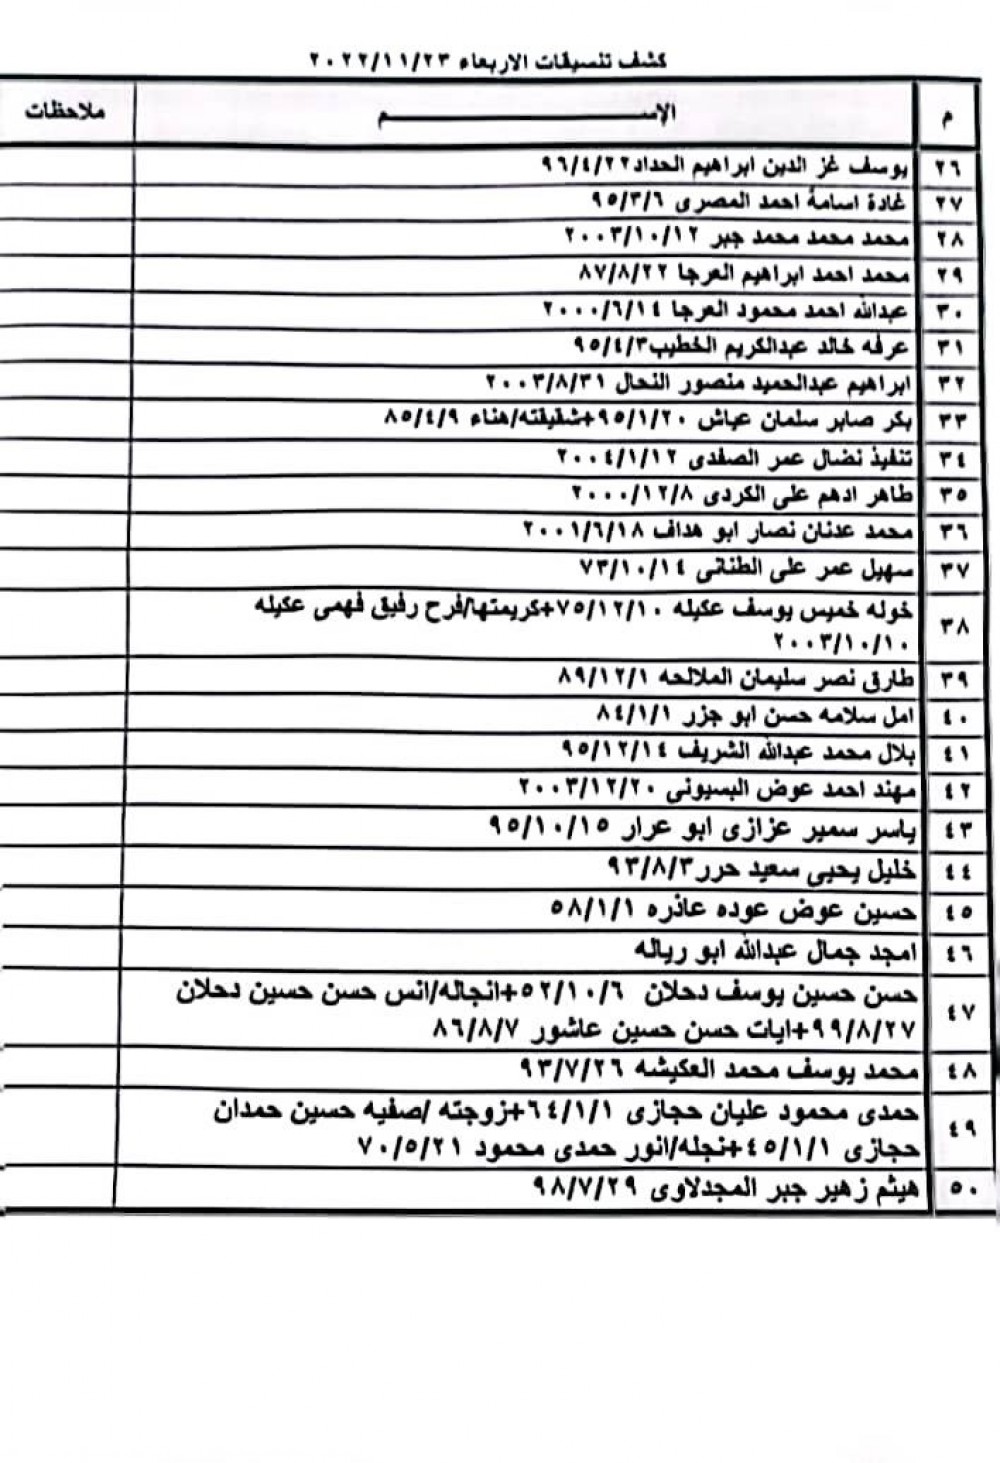 كشف تنسيقات الاربعاء ٢٠٢٢/١١/٢٣
م الإســـــــــم ملاحظات
٢٦ يوسف غز الدين ابراهيم الحداد٩٦/٤/٢٢
٢٧ غادة اسامة احمد المصرى ٩٥/٣/٦
٢٨ محمد محمد محمد جبر ٢٠٠٣/١٠/١٢
٢٩ محمد احمد ابراهيم العرجا ٨٧/٨/٢٢
٣٠ عبدالله احمد محمود العرجا ٢٠٠٠/٦/١٤
٣١ عرفه خالد عبدالكريم الخطيب٩٥/٤/٣
٣٢ ابراهيم عبدالحميد منصور النحال ٢٠٠٣/٨/٣١
٣٣ بكر صابر سلمان عياش ٩٥/١/٢٠+شقيقته/هناء ٨٥/٤/٩
٣٤ تنفيذ نضال عمر الصفدى ٢٠٠٤/١/١٢
٣٥ طاهر ادهم على الكردى ٢٠٠٠/١٢/٨
٣٦ محمد عدنان نصار ابو هداف ٢٠٠١/٦/١٨
٣٧ سهيل عمر على الطنانى ٧٣/١٠/١٤
٣٨ خوله خميس يوسف عكيله ٧٥/١٢/١٠+كريمتها/فرح رفيق فهمى عكيله
٢٠٠٣/١٠/١٠
٣٩ طارق نصر سليمان الملالحه ٨٩/١٢/١
٤٠ امل سلامه حسن ابو جزر ٨٤/١/١
٤١ بلال محمد عبدالله الشريف ٩٥/١٢/١٤
٤٢ مهند احمد عوض البسيونى ٢٠٠٣/١٢/٢٠
٤٣ ياسر سمير عزازى ابو عرار ٩٥/١٠/١٥
٤٤ خليل يحيى سعيد حرر٩٣/٨/٣
٤٥ حسين عوض عوده عاذره ٥٨/١/١
٤٦ امجد جمال عبدالله ابو رياله
٤٧ حسن حسين يوسف دحلان ٥٢/١٠/٦+انجاله/انس حسن حسين دحلان
٩٩/٨/٢٧+ايات حسن حسين عاشور ٨٦/٨/٧
٤٨ محمد يوسف محمد العكيشه ٩٣/٧/٢٦
٤٩ حمدى محمود عليان حجازى ٦٤/١/١+زوجته /صفيه حسين حمدان
حجازى ٤٥/١/١+نجله/انور حمدى محمود ٧٠/٥/٢١
٥٠ هيثم زهير جبر المجدلاوى ٩٨/٧/٢٩